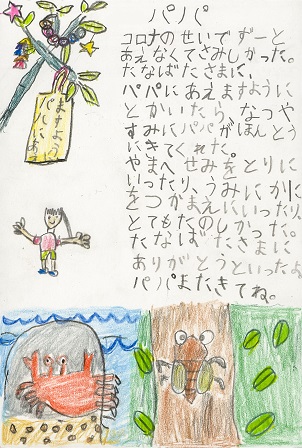 パパ
コロナのせいでずーと
あえなくてさみしかった。
たなばたさまに、
パパにあえますように
とかいたら、なつや
すみにパパがほんとう
にきてくれた。
やまへせみをとりに
いったり、うみにかに
をつかまえにいったり
とてもたのしかった。
たなばたさまに
ありがとうといったよ
パパまたきてね。
パパにあえ
ますよう